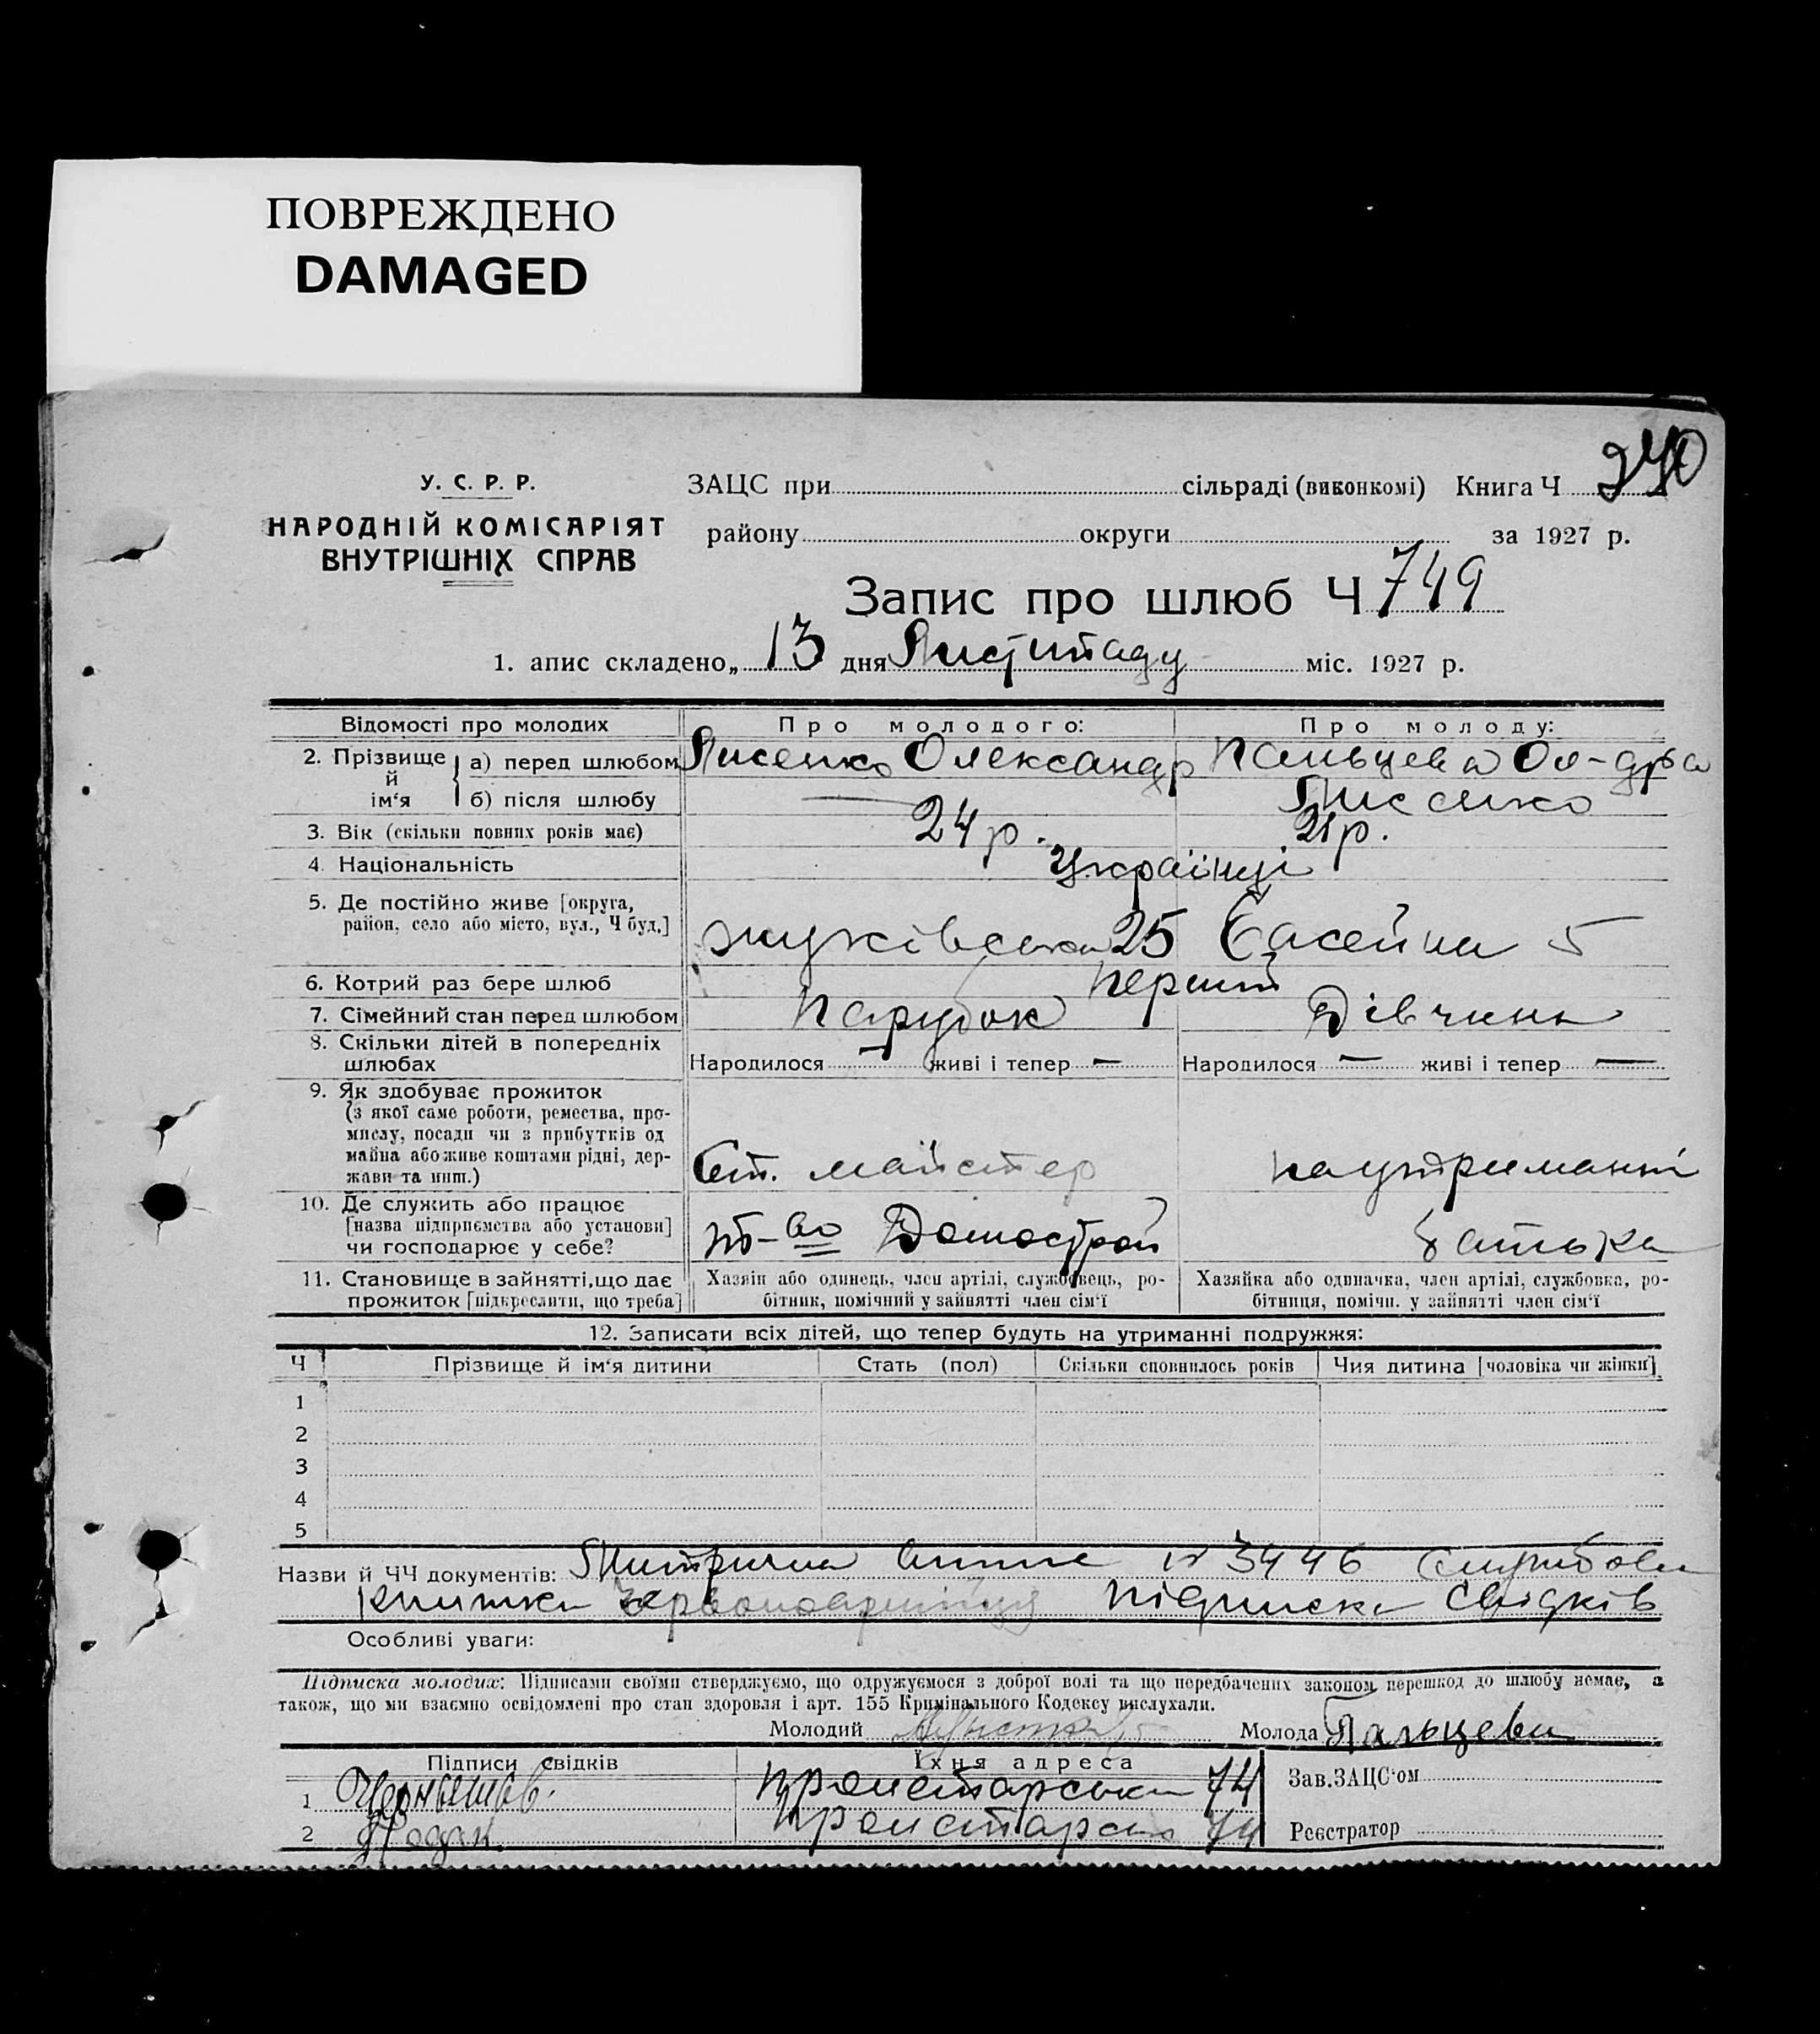 ПОВРЕЖДЕНО
DAMAGED
270
У. С. Р. Р.
НАРОДНІЙ КОМІСАРІЯТ
ВНУТРІШНІХ СПРАВ
ЗАЦС при сільраді (виконкомі) Книга Ч
району округи за 1927 р.
Запис про шлюб Ч 749
1. апис складено „ 13 дня Листопаду міс. 1927 р.
Відомості про молодих Про молодого: Про молоду:
2. Прізвище й ім'я а) перед шлюбом Лисенко Олександр Пальцева Ол-дра
б) після шлюбу — Лисенко
3. Вік (скільки повних років має) 24 р. 21 р.
4. Національність Українці
5. Де постійно живе [округа, район, село або місто, вул., Ч буд.] Жуківська 25 Басейна 5
6. Котрий раз бере шлюб перший
7. Сімейний стан перед шлюбом Парубок Дівчина
8. Скільки дітей в попередніх шлюбах Народилося — живі і тепер — Народилося — живі і тепер —
9. Як здобуває прожиток
(з якої саме роботи, ремества, промислу, посади чи з прибутків од майна або живе коштами рідні, держави та инш.) Ст. майстер на утриманні
10. Де служить або працює
[назва підприємства або установи] чи господарює у себе? т-во Домострой батька
11. Становище в зайнятті, що дає прожиток [підкреслити, що треба] Хазяїн або одинець, член артілі, службовець, робітник, помічний у зайнятті член сім'ї Хазяйка або одиначка, член артілі, службовка, робітниця, помічн. у зайнятті член сім'ї
12. Записати всіх дітей, що тепер будуть на утриманні подружжя:
Ч Прізвище й ім'я дитини Стать (пол) Скільки сповнилось років Чия дитина [чоловіка чи жінки]
1
2
3
4
5
Назви й ЧЧ документів: Метрична № 3446 Службова
книжка червоноармійця підписка свідків
Особливі уваги:
Підписка молодих: Підписами своїми стверджуємо, що одружуємося з доброї волі та що передбачених законом перешкод до шлюбу немає, а
також, що ми взаємно освідомлені про стан здоровля і арт. 155 Кримінального Кодексу вислухали.
Молодий Молода Пальцева
Підписи свідків Їхня адреса Зав. ЗАЦС'ом
1 Чернышев. Пролетарська 74
2 Пролетарська 74 Реєстратор